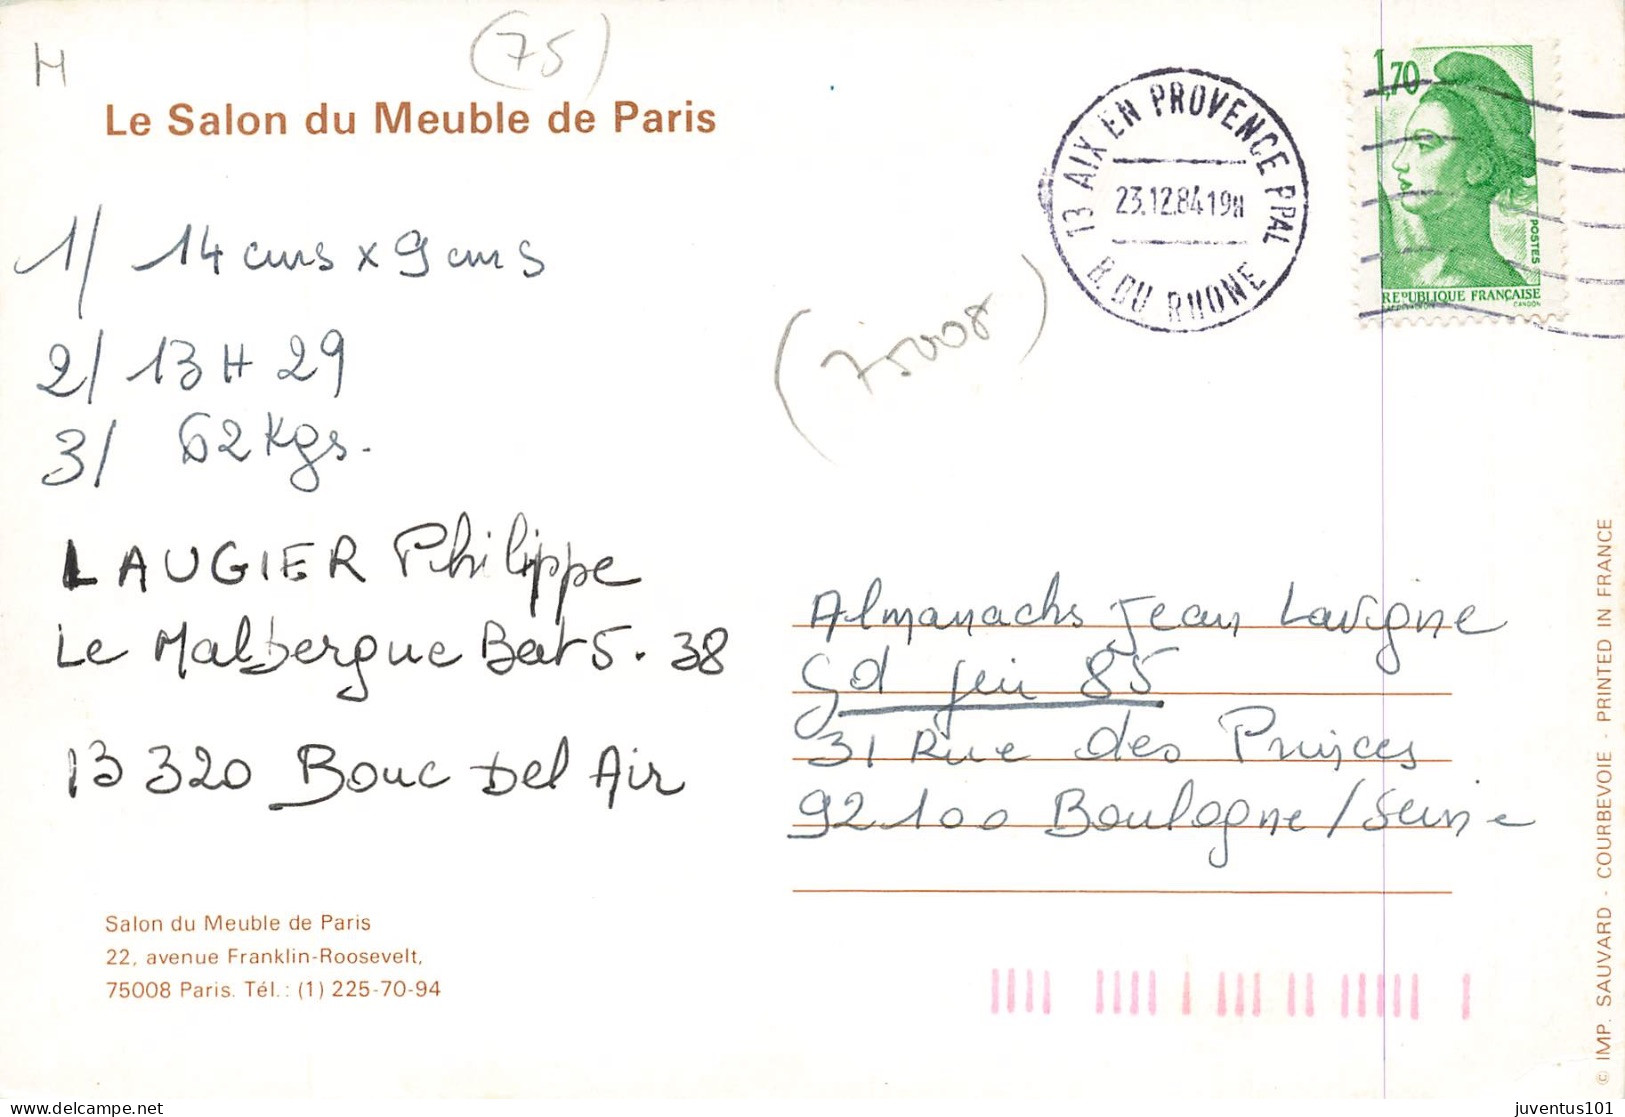 H
(75)
Le Salon du Meuble de Paris
1/ 14 cms x 9 cms
2/ 13 H 29
3/ 62 Kgs.
LAUGIER Philippe
Le Malbergue Bat 5. 38
13 320 Bouc Del Air
Salon du Meuble de Paris
22, avenue Franklin-Roosevelt,
75008 Paris. Tél. : (1) 225-70-94
(75008)
13 AIX EN PROVENCE PPAL
23.12.84 19H
B. DU RHONE
1,70
POSTES
REPUBLIQUE FRANÇAISE
GANDON
Almanachs Jean Lavigne
Gd Jeu 85
31 Rue des Princes
92100 Boulogne/Seine
© IMP. SAUVARD - COURBEVOIE - PRINTED IN FRANCE
juventus101